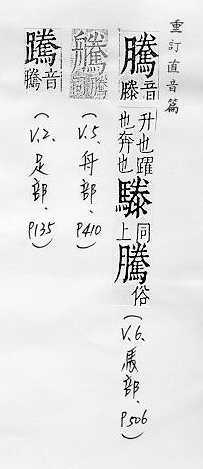 重訂直音篇
騰音滕升也躍也奔也同上騰俗(V.6.馬部、P506)
(V.5.舟部、P410)
音騰(V.2.足部、P135)